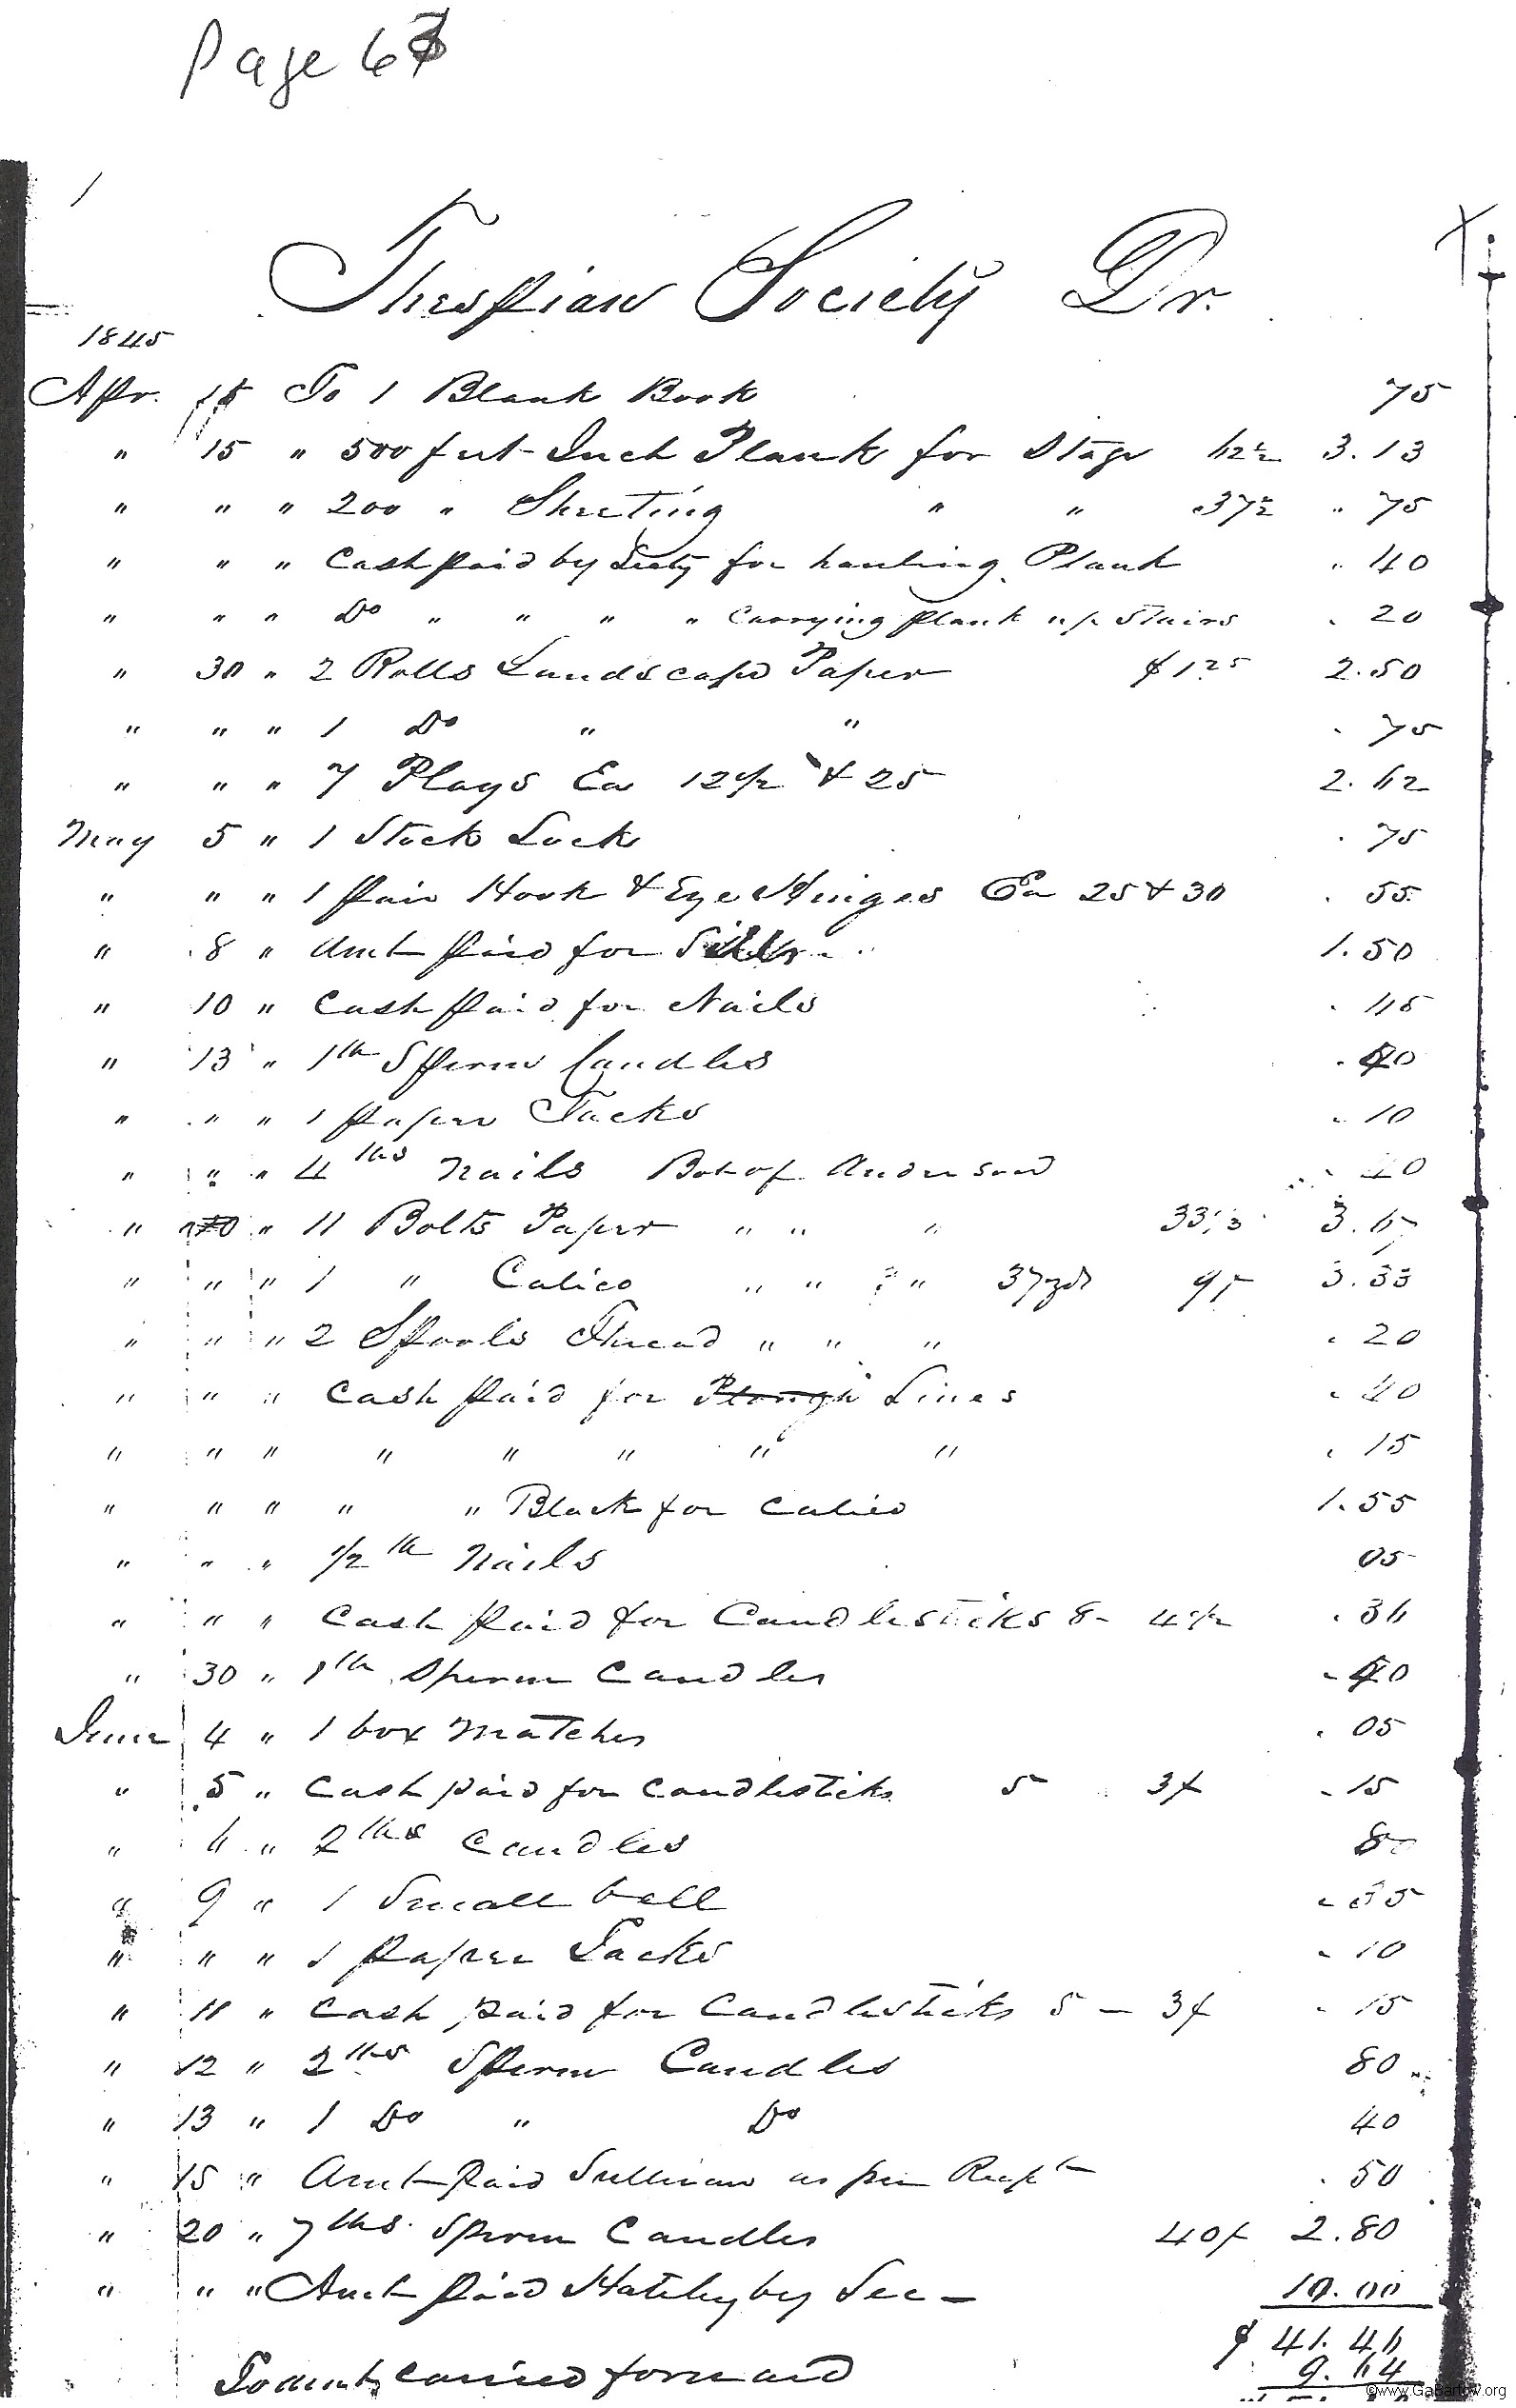 Page 67
1
Thespian Society Dr.
1845
Apr. 15 To 1 Blank Book 75
" 15 " 500 feet Inch Plank for Stage 62½ 3.13
" " " 200 " Sheeting " " .37½ " 75
" " " Cash paid by Secty for hauling Plank " 40
" " " Do " " " " Carrying plank up Stairs . 20
" 30 " 2 Rolls Landscape Paper $1.25 2.50
" " " 1 Do " " . 75
" " " 7 Plays Ea 12½ & 25 2.62
May 5 " 1 Stock Lock . 75
" " " 1 pair Hook & Eye Hinges Ea 25 & 30 . 55
" 8 " Amt paid for 1.50
" 10 " Cash paid for Nails
" 13 " 1 lb Sperm Candles . 40
" " " 1 paper Tacks . 10
" " " 4 lbs Nails Bot of Anderson . 40
" " 11 Bolts Paper " " " 33⅓ 3.67
" " " 1 " Calico " " " 37 yds 9¢ 3.33
" " " 2 Spools Thread " " " . 20
" " " Cash paid for Plough Lines . 40
" " " " " " " " . 15
" " " " " Black for Calico 1.55
" " " ½ lb Nails 05
" " " Cash paid for Candlesticks 8 - 4½ . 36
" 30 " 1 lb Sperm Candles . 40
June 4 " 1 box Matches . 05
" 5 " Cash paid for Candlesticks 5 3¢ . 15
" 6 " 2 lbs Candles 80
" 9 " 1 Small bell
" " " 1 paper Tacks . 10
" 11 " Cash paid for Candlesticks 5 - 3¢ . 15
" 12 " 2 lbs Sperm Candles 80
" 13 " 1 Do " Do 40
" 15 " Amt paid Sullivan as per Recpt . 50
" 20 " 7 lbs. Sperm Candles 40¢ 2.80
" " " Amt paid by Sec - 10.00
$ 41.46
To amt carried forward 9.64
©www.GaBartow.org